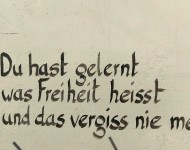 Du hast gelernt
was Freiheit heisst
und das vergiss nie